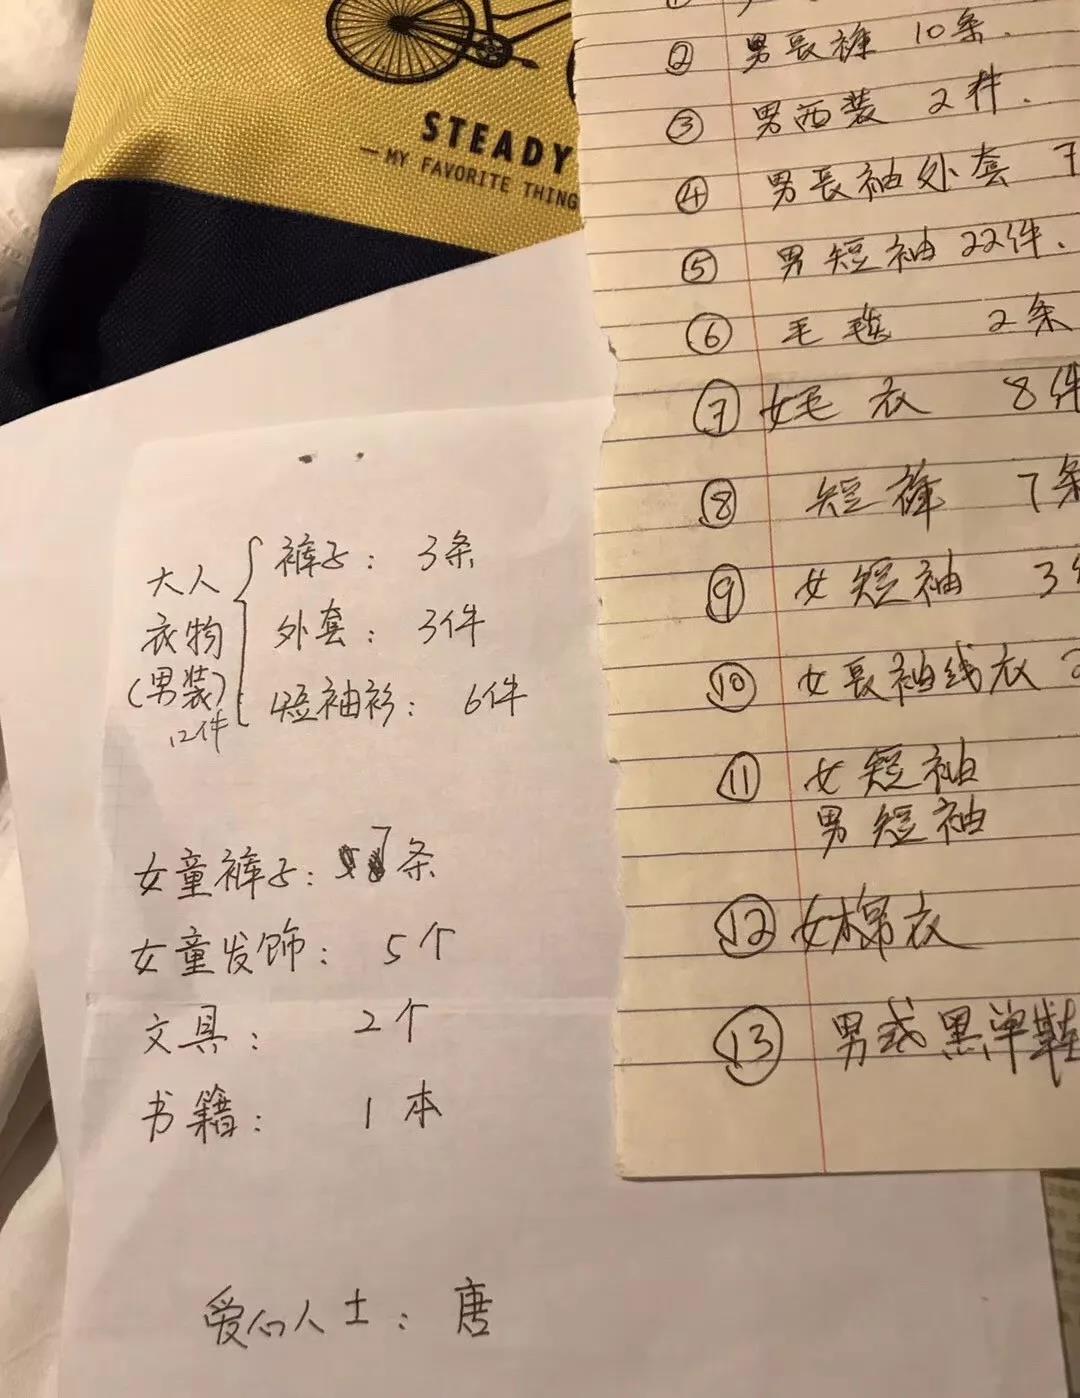 STEADY
— MY FAVORITE THING
② 男長裤 10条.
③ 男西装 2件.
④ 男長袖外套
⑤ 男短袖 22件.
⑥ 毛毯 2条
⑦ 女毛衣 8件
⑧ 短裤 7条
⑨ 女短袖 3件
⑩ 女長袖线衣 2
⑪ 女短袖
男短袖
⑫ 女棉衣
⑬ 男式黑单鞋
大人
衣物
(男装)
12件
裤子: 3条
外套: 3件
短袖衫: 6件
女童裤子: 7条
女童发饰: 5个
文具: 2个
书籍: 1本
爱心人士: 唐